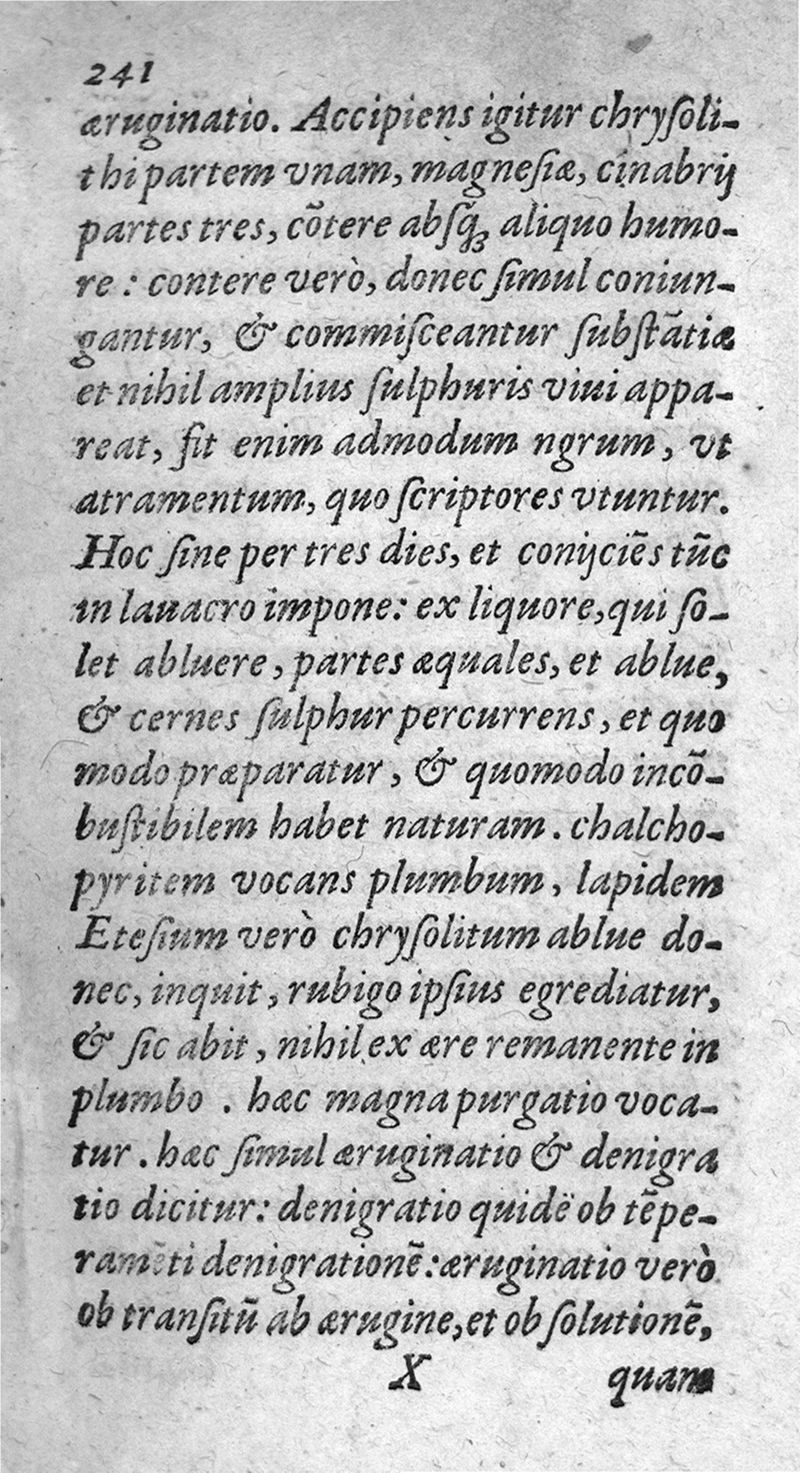 241
æruginatio. Accipiens igitur chryſoli-
thi partem vnam, magneſiæ, cinabrij
partes tres, cõtere abſq; aliquo humo-
re : contere verò, donec ſimul coniun-
gantur, & commiſceantur ſubſtãtiæ
et nihil amplius ſulphuris viui appa-
reat, fit enim admodum ngrum, vt
atramentum, quo ſcriptores vtuntur.
Hoc ſine per tres dies, et conijciẽs tũc
in lauacro impone: ex liquore, qui ſo-
let abluere, partes æquales, et ablue,
& cernes ſulphur percurrens, et quo
modo præparatur, & quomodo incõ-
buſtibilem habet naturam. chalcho-
pyritem vocans plumbum, lapidem
Eteſium verò chryſolitum ablue do-
nec, inquit, rubigo ipſius egrediatur,
& ſic abit, nihil ex ære remanente in
plumbo . hæc magna purgatio voca-
tur. hæc ſimul æruginatio & denigra
tio dicitur: denigratio quidẽ ob tẽpe-
ramẽti denigrationẽ: æruginatio verò
ob tranſitũ ab ærugine, et ob ſolutionẽ,
X quam